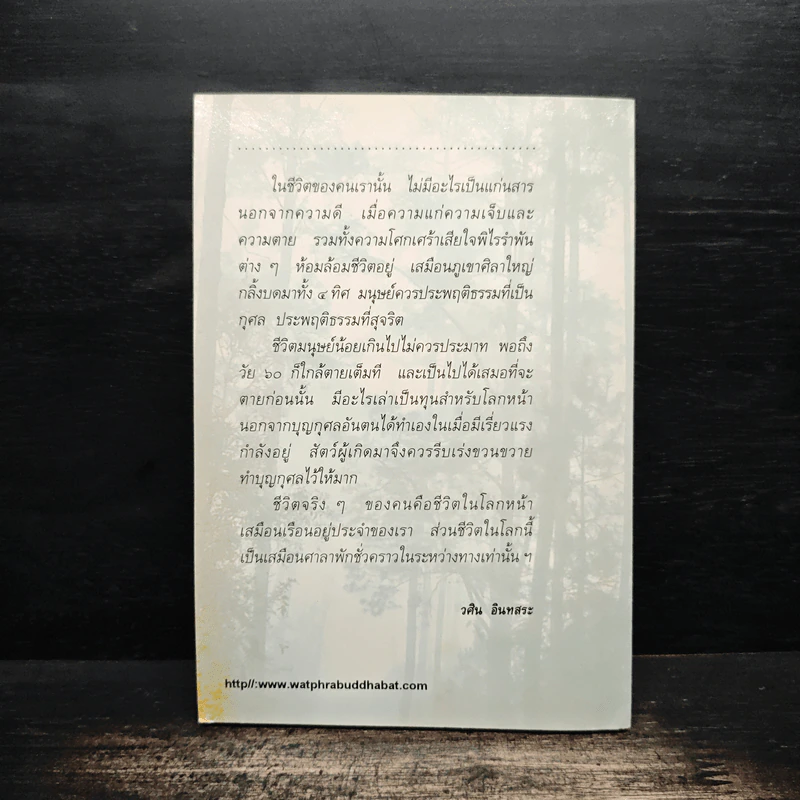 ในชีวิตของคนเรานั้น ไม่มีอะไรเป็นแก่นสาร
นอกจากความดี เมื่อความแก่ความเจ็บและ
ความตาย รวมทั้งความโศกเศร้าเสียใจพิไรรำพัน
ต่าง ๆ ห้อมล้อมชีวิตอยู่ เสมือนภูเขาศิลาใหญ่
กลิ้งบดมาทั้ง ๔ ทิศ มนุษย์ควรประพฤติธรรมที่เป็น
กุศล ประพฤติธรรมที่สุจริต
ชีวิตมนุษย์น้อยเกินไปไม่ควรประมาท พอถึง
วัย ๖๐ ก็ใกล้ตายเต็มที และเป็นไปได้เสมอที่จะ
ตายก่อนนั้น มีอะไรเล่าเป็นทุนสำหรับโลกหน้า
นอกจากบุญกุศลอันตนได้ทำเองในเมื่อมีเรี่ยวแรง
กำลังอยู่ สัตว์ผู้เกิดมาจึงควรรีบเร่งขวนขวาย
ทำบุญกุศลไว้ให้มาก
ชีวิตจริง ๆ ของคนคือชีวิตในโลกหน้า
เสมือนเรือนอยู่ประจำของเรา ส่วนชีวิตในโลกนี้
เป็นเสมือนศาลาพักชั่วคราวในระหว่างทางเท่านั้น ฯ
วศิน อินทสระ
http//:www.watphrabuddhabat.com